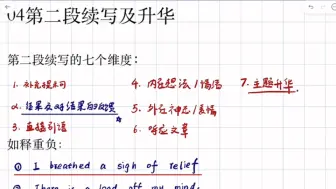 04第二段续写及升华
第二段续写的七个维度：
1. 补充提问 4. 内心想法/情绪 7. 主题升华
2. 结果及对结果的反馈 5. 外在神态/表情
3. 直接引语 6. 呼应文章
如释重负：
① I breathed a sigh of relief
② There is a load off my mind.